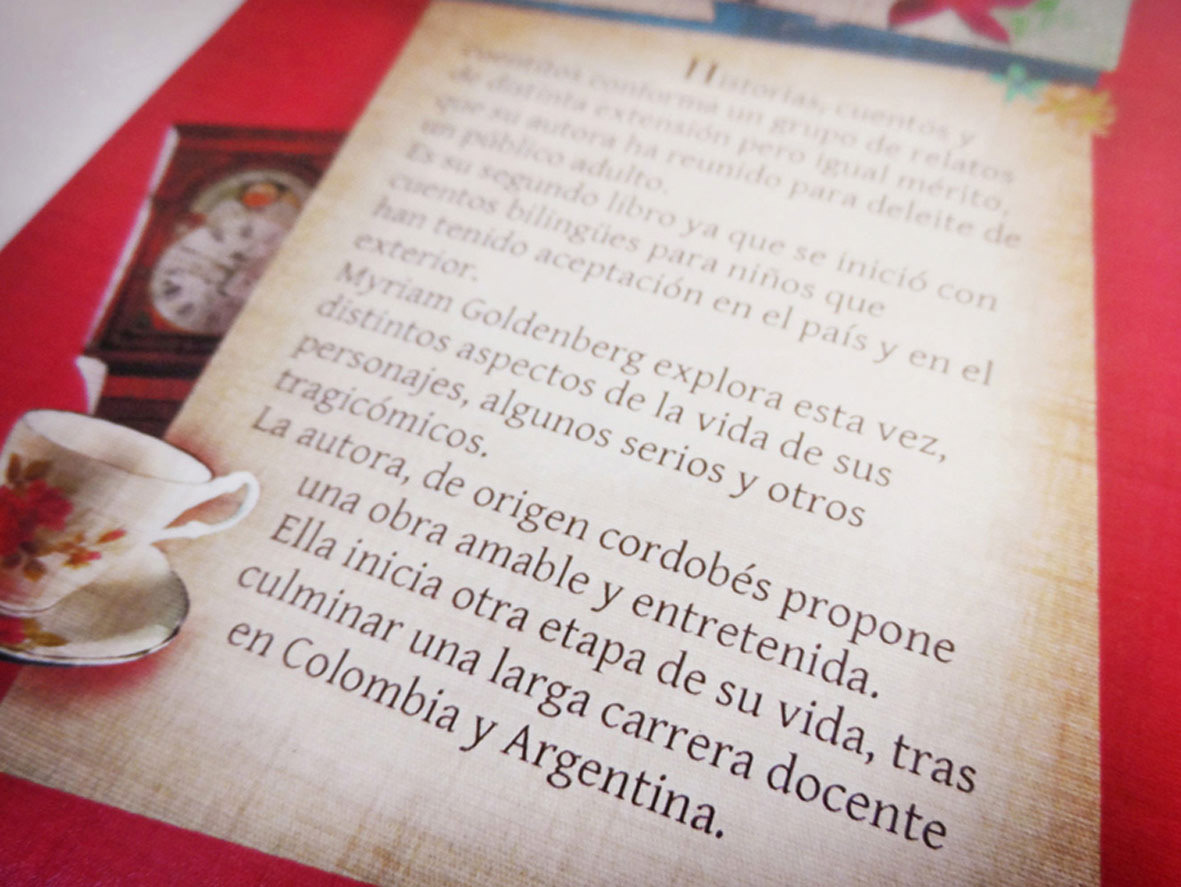 Historias, cuentos y
cuentitos conforma un grupo de relatos
de distinta extensión pero igual mérito,
que su autora ha reunido para deleite de
un público adulto.
Es su segundo libro ya que se inició con
cuentos bilingües para niños que
han tenido aceptación en el país y en el
exterior.
Myriam Goldenberg explora esta vez,
distintos aspectos de la vida de sus
personajes, algunos serios y otros
tragicómicos.
La autora, de origen cordobés propone
una obra amable y entretenida.
Ella inicia otra etapa de su vida, tras
culminar una larga carrera docente
en Colombia y Argentina.